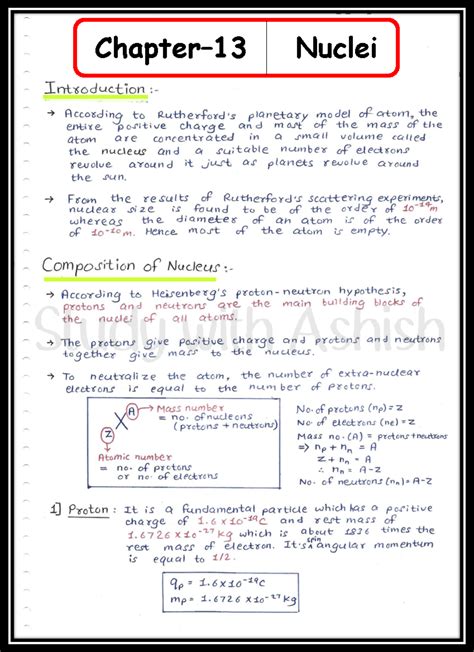 Chapter–13 Nuclei
Introduction :-
→ According to Rutherford's planetary model of atom, the
entire positive charge and most of the mass of the
atom are concentrated in a small volume called
the nucleus and a suitable number of electrons
revolve around it just as planets revolve around
the sun.
→ From the results of Rutherford's scattering experiments,
nuclear size is found to be of the order of 10⁻¹⁴m
whereas the diameter of an atom is of the order
of 10⁻¹⁰m. Hence most of the atom is empty.
Composition of Nucleus :-
→ According to Heisenberg's proton-neutron hypothesis,
protons and neutrons are the main building blocks of
the nuclei of all atoms.
Study with Ashish
→ The protons give positive charge and protons and neutrons
together give mass to the nucleus.
→ To neutralize the atom, the number of extra-nuclear
electrons is equal to the number of protons.
X A → Mass number
= no. of nucleons
(protons + neutrons)
Z
Atomic number
= no. of protons
or no. of electrons
No. of protons (np) = Z
No. of electrons (ne) = Z
Mass no. (A) = protons + neutrons
⇒ np + nn = A
Z + nn = A
∴ nn = A-Z
No. of neutrons (nn) = A-Z
1] Proton : It is a fundamental particle which has a positive
charge of 1.6 x 10⁻¹⁹C and rest mass of
1.6726 x 10⁻²⁷ kg which is about 1836 times the
rest mass of electron. It's spin angular momentum
is equal to 1/2.
qp = 1.6 x 10⁻¹⁹C
mp = 1.6726 x 10⁻²⁷ kg